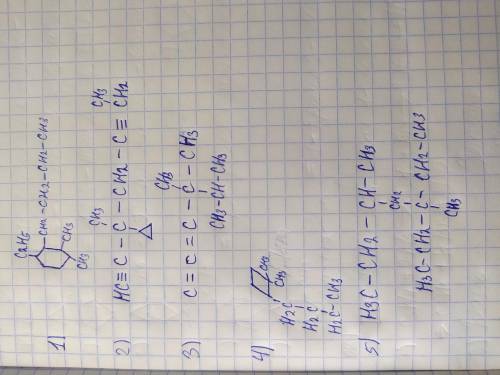 1)
C2H5
CH2-CH2-CH2-CH3
CH3
CH3
2)
CH3 CH3
HC≡C-C-CH2-C≡CH2
3)
CH3
C=C=C-C-CH3
CH3-CH-CH3
4)
CH3
CH3
H2C
H2C
H2C-CH3
5) H3C-CH2-CH-CH3
CH2
H3C-CH2-C-CH2-CH3
CH3